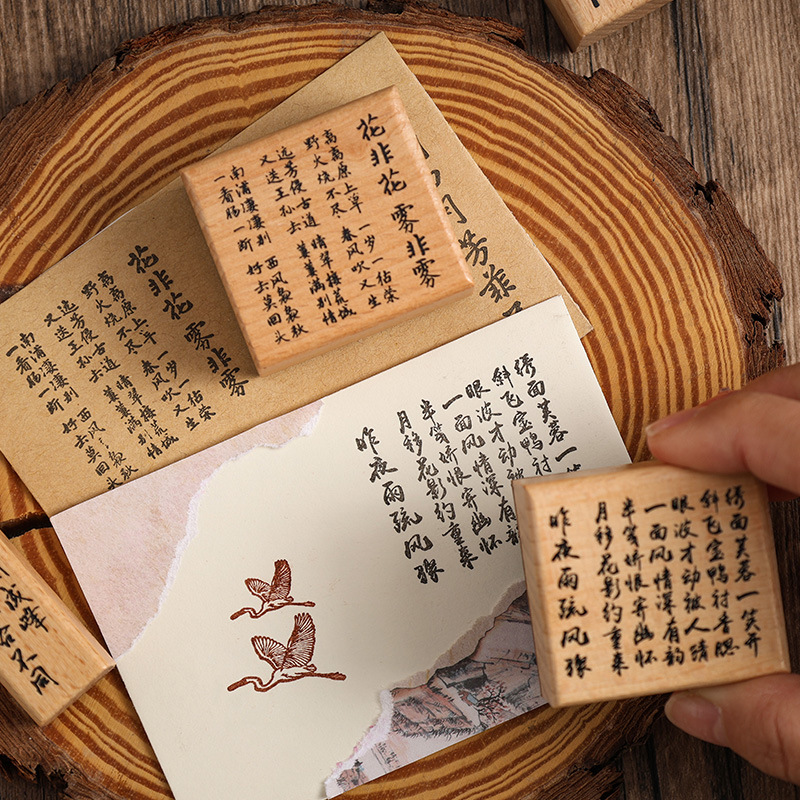 花非花 雾非雾
离离原上草 一岁一枯荣
野火烧不尽 春风吹又生
远芳侵古道 晴翠接荒城
又送王孙去 萋萋满别情
南浦凄凄别 西风袅袅秋
一看肠一断 好去莫回头
月芳菲
花非花 雾非雾
离离原上草 一岁一枯荣
野火烧不尽 春风吹又生
远芳侵古道 晴翠接荒城
又送王孙去 萋萋满别情
南浦凄凄别 西风袅秋
一看肠一断 好去莫回头
绣面芙蓉一
斜飞宝鸭衬
眼波才动被
一面风情深有韵
半笺娇恨寄幽怀
月移花影约重来
昨夜雨疏风骤
绣面芙蓉一笑开
斜飞宝鸭衬香腮
眼波才动被人猜
一面风情深有韵
半笺娇恨寄幽怀
月移花影约重来
昨夜雨疏风骤
成峰
不同